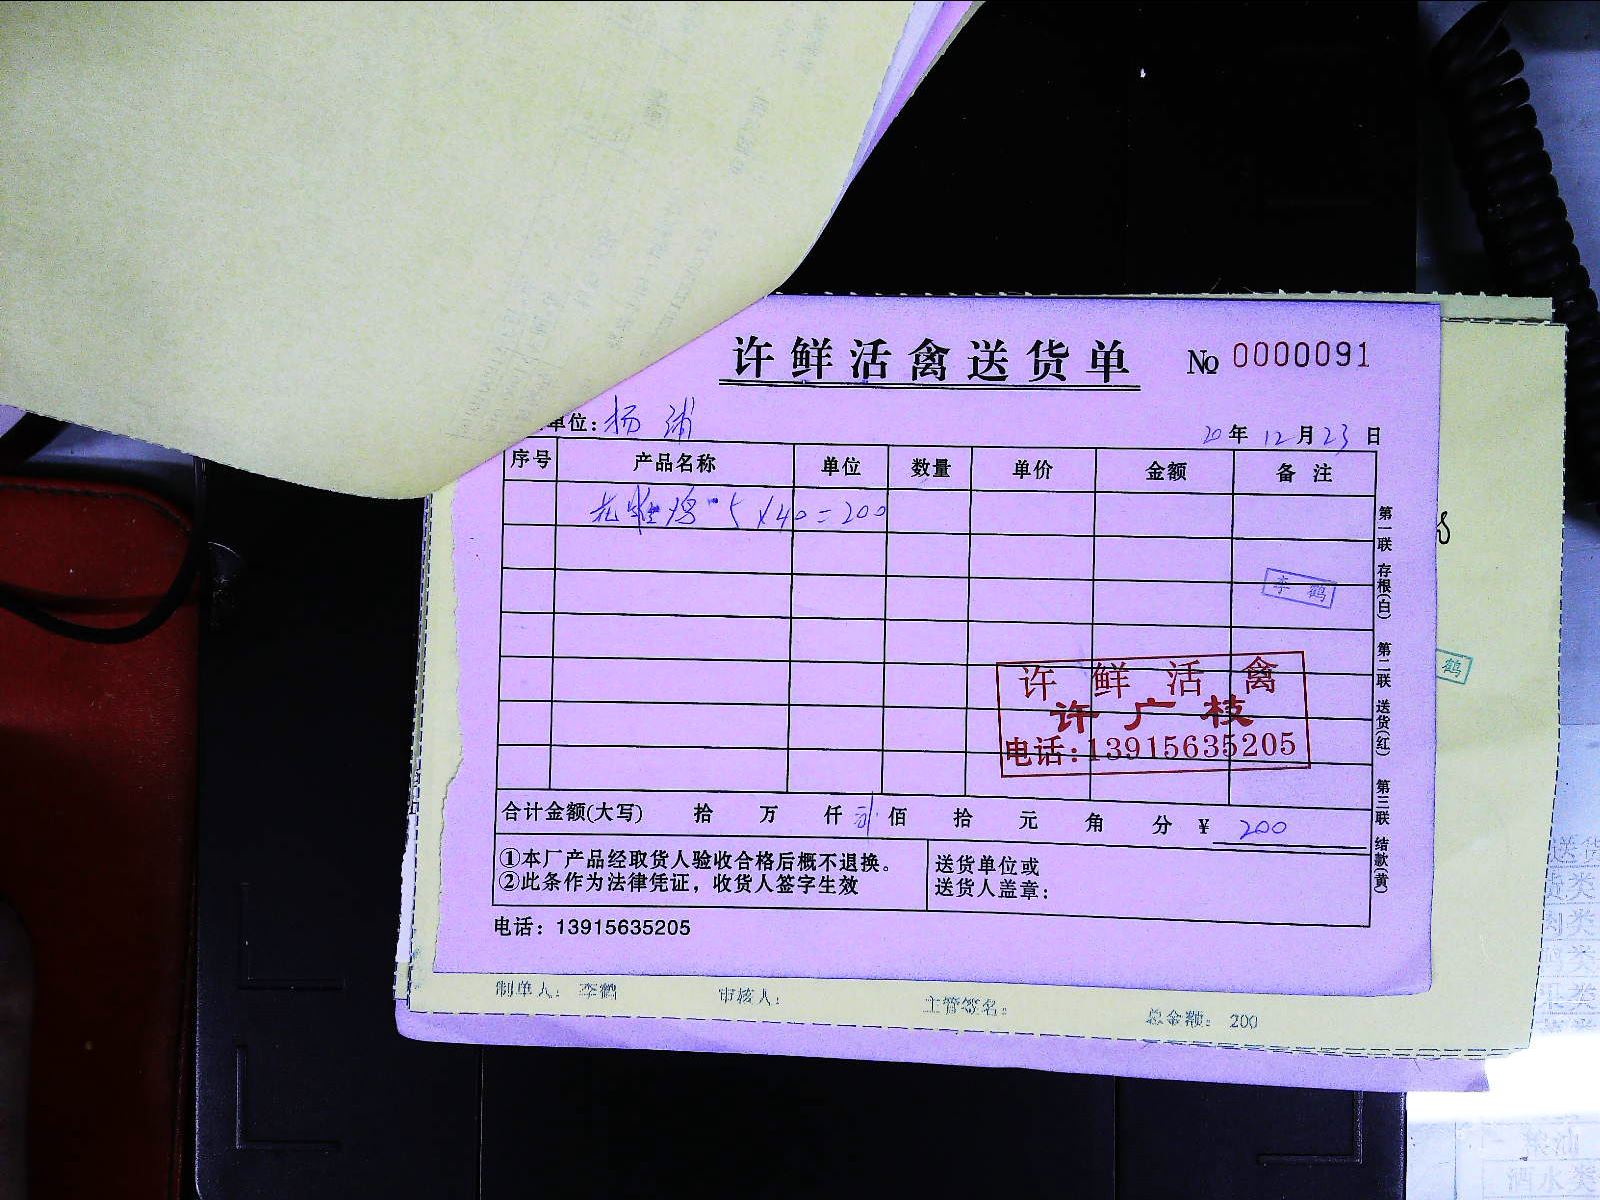 许鲜活禽送货单 No 0000091
单位: 杨浦
20年12月23日
序号 产品名称 单位 数量 单价 金额 备注
5×40=200
李鹤
许鲜活禽
许广枝
电话:13915635205
合计金额(大写) 拾 万 仟 贰佰 拾 元 角 分 ¥ 200
①本厂产品经取货人验收合格后概不退换。
②此条作为法律凭证，收货人签字生效
送货单位或
送货人盖章:
电话: 13915635205
第一联 存根(白) 第二联 送货(红) 第三联 结款(黄)
鹤
制单人: 李鹤 审核人: 主管签名: 总金额: 200
送货
肉类
粮油
酒水类